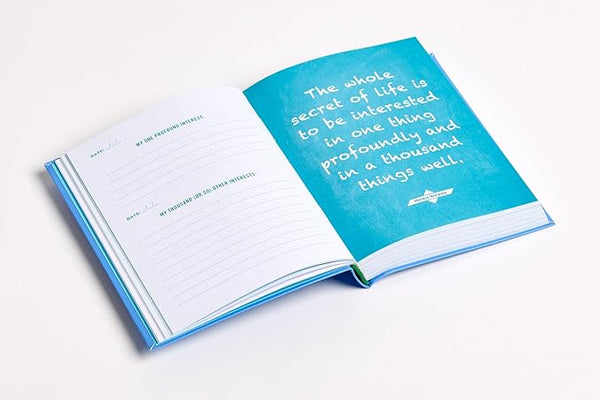 DATE:
MY ONE PROFOUND INTEREST:
DATE:
MY THOUSAND (OR SO) OTHER INTERESTS:
The whole
secret of life is
to be interested
in one thing
profoundly and
in a thousand
things well.